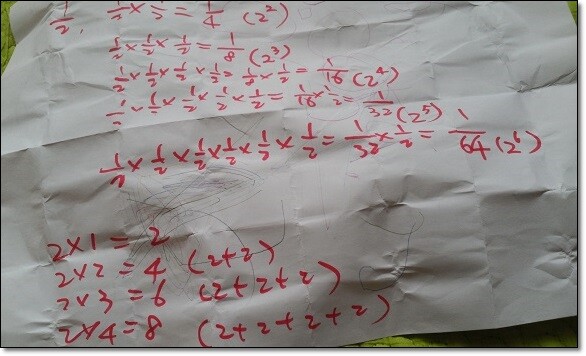 1/2, 1/2 × 1/2 = 1/4 (2²)
1/2 × 1/2 × 1/2 = 1/8 (2³)
1/2 × 1/2 × 1/2 × 1/2 = 1/8 × 1/2 = 1/16 (2⁴)
1/2 × 1/2 × 1/2 × 1/2 × 1/2 = 1/16 × 1/2 = 1/32 (2⁵)
1/2 × 1/2 × 1/2 × 1/2 × 1/2 × 1/2 = 1/32 × 1/2 = 1/64 (2⁶)
2×1 = 2
2×2 = 4 (2+2)
2×3 = 6 (2+2+2)
2×4 = 8 (2+2+2+2)